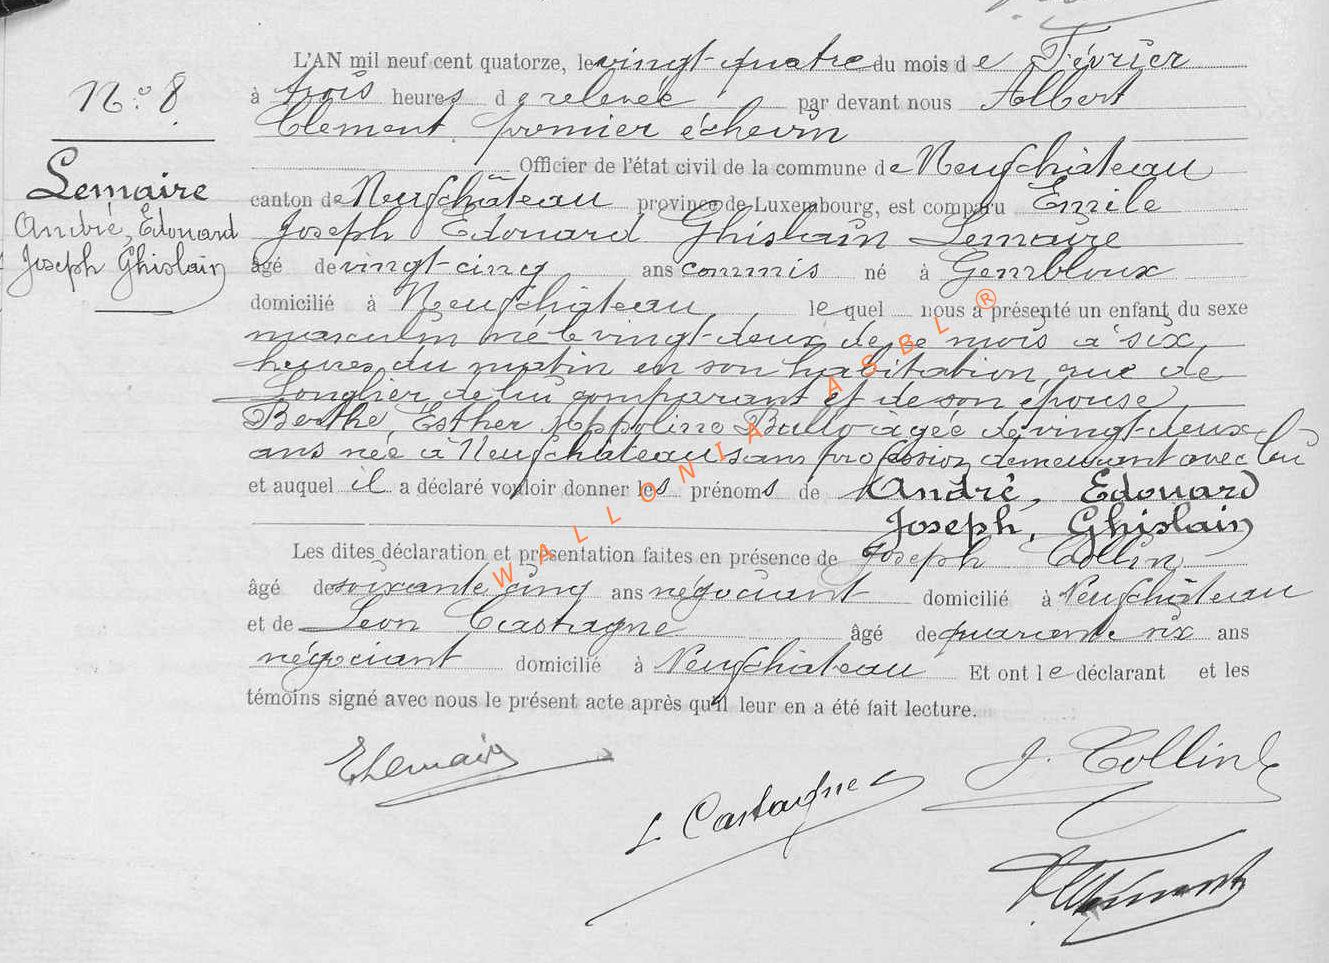 N° 8
Lemaire
André, Edouard
Joseph Ghislain
L'AN mil neuf cent quatorze, le vingt-quatre du mois de Février
à trois heures de relevée par devant nous Albert
Clément, premier échevin
Officier de l'état civil de la commune de Neufchâteau
canton de Neufchâteau province de Luxembourg, est comparu Emile
Joseph Edouard Ghislain Lemaire
âgé de vingt-cinq ans commis né à Gembloux
domicilié à Neufchâteau lequel nous a présenté un enfant du sexe
masculin né le vingt-deux de ce mois à six
heures du matin en son habitation, rue de
Longlier, de lui comparant et de son épouse
Berthe, Esther Appoline âgée de vingt-deux
ans née à Neufchâteau sans profession demeurant avec lui
et auquel il a déclaré vouloir donner les prénoms de André, Edouard
Joseph, Ghislain
Les dites déclaration et présentation faites en présence de Joseph Collin
âgé de soixante cinq ans négociant domicilié à Neufchâteau
et de Léon Castagne âgé de quarante six ans
négociant domicilié à Neufchâteau Et ont le déclarant et les
témoins signé avec nous le présent acte après qu'il leur en a été fait lecture.
WALLONIA ASBL ®
ELemaire
J. Collin
L Castagne